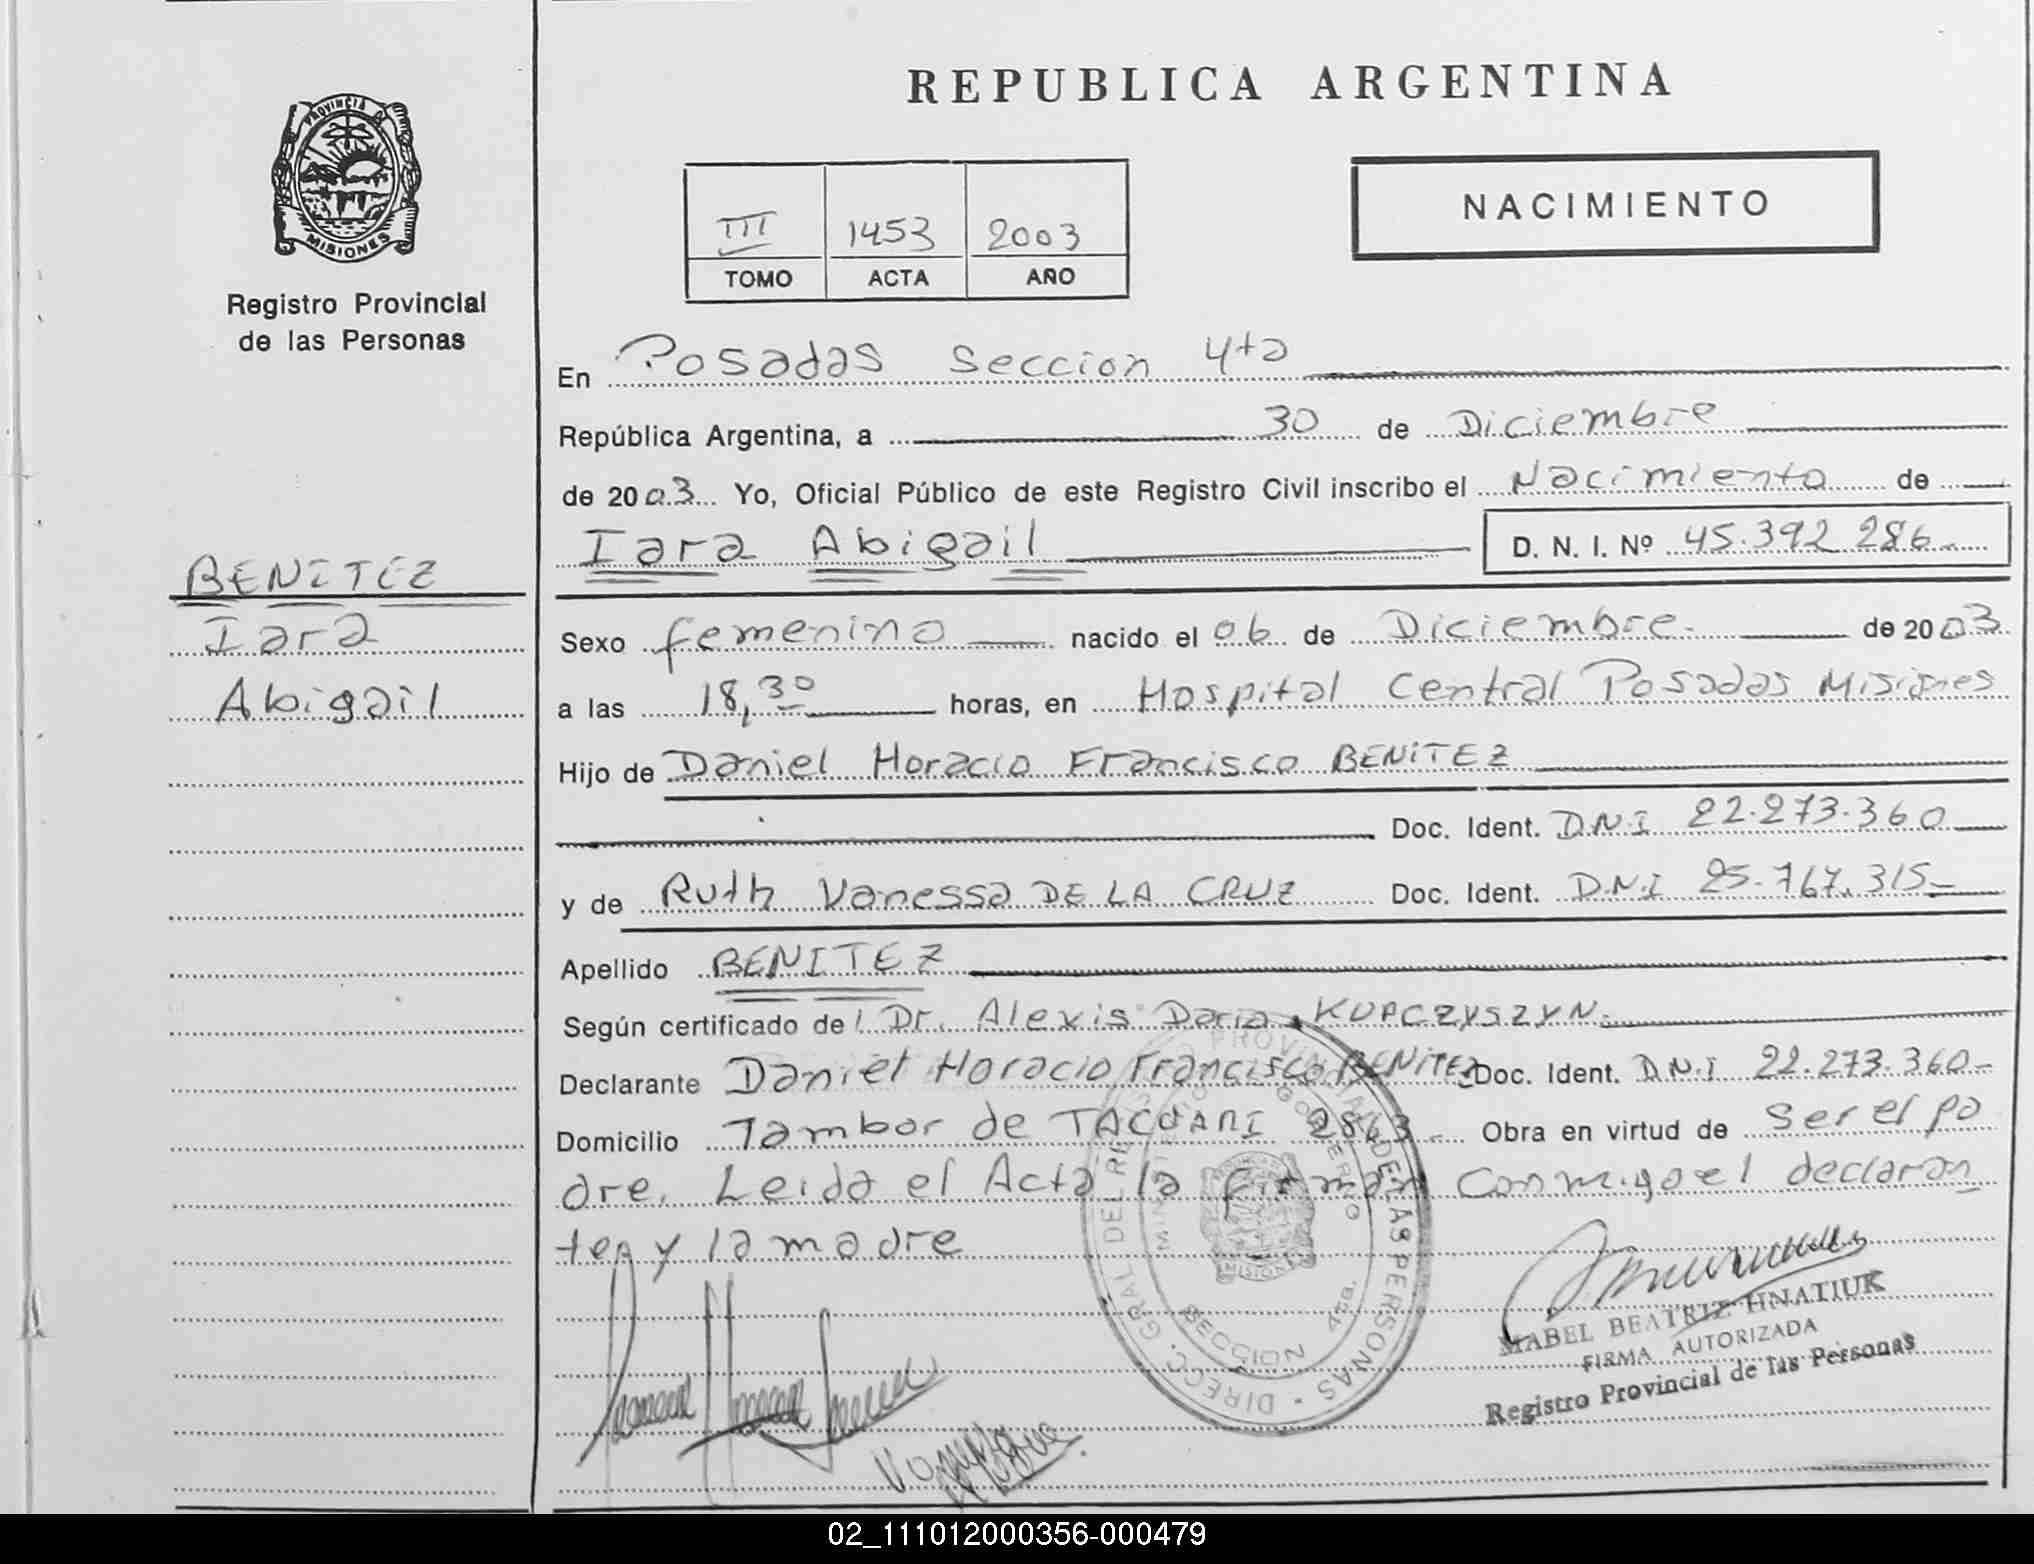 PROVINCIA DE
MISIONES
Registro Provincial
de las Personas
BENITEZ
Iara
Abigail
REPUBLICA ARGENTINA
III 1453 2003
TOMO ACTA AÑO
NACIMIENTO
En Posadas Seccion 4ta
República Argentina, a 30 de Diciembre
de 2003 Yo, Oficial Público de este Registro Civil inscribo el Nacimiento de
Iara Abigail D. N. I. Nº 45.392 286
Sexo femenino nacido el 06 de Diciembre de 2003
a las 18,30 horas, en Hospital Central Posadas Misiones
Hijo de Daniel Horacio Francisco BENITEZ
Doc. Ident. D.N.I 22.273.360
y de Ruth Vanessa DE LA CRUZ Doc. Ident. D.N.I 25.767.315
Apellido BENITEZ
Según certificado de Dr. Alexis Dario KUPCZYSZYN
Declarante Daniel Horacio Francisco BENITEZ Doc. Ident. D.N.I 22.273.360
Domicilio Tambor de TACUARI 2863 Obra en virtud de Ser el pa
dre. Leida el Acta la firman conmigo el declaran
te y la madre
DIRECC. GRAL DEL REGISTRO PROVINCIAL DE LAS PERSONAS
MINISTERIO DE GOBIERNO
MISIONES
SECCION 4ta.
MABEL BEATRIZ HNATIUK
FIRMA AUTORIZADA
Registro Provincial de las Personas
02_111012000356-000479